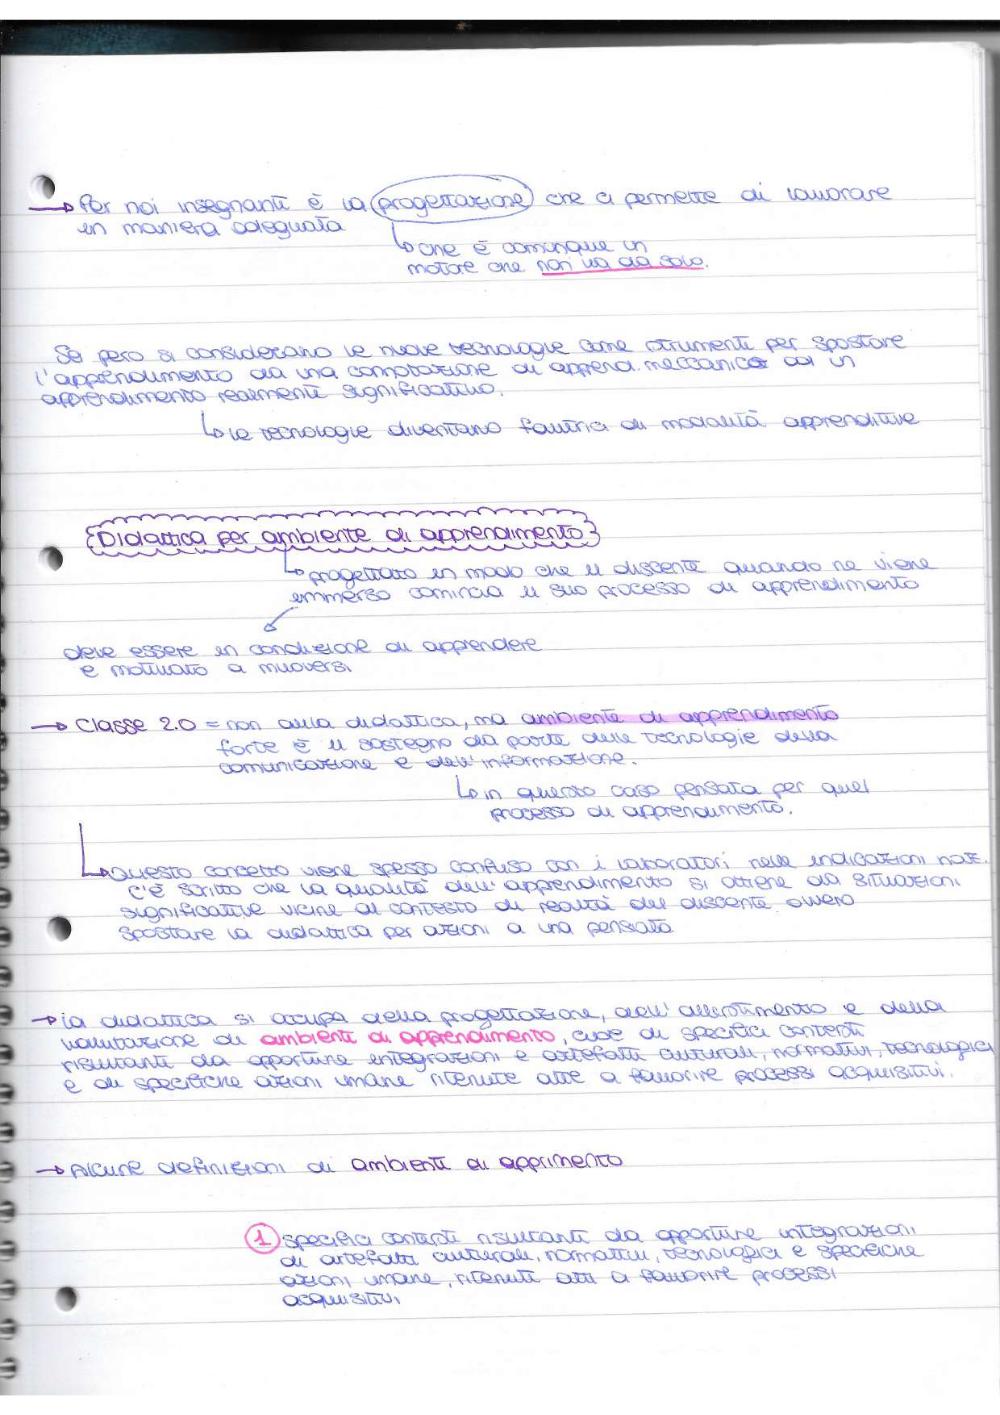 → Per noi insegnanti è la progettazione che ci permette di lavorare
in maniera adeguata
↳ che è comunque un
motore che non va da solo.
Se però si considerano le nuove tecnologie come strumenti per spostare
l'apprendimento da una comprazione di apprend. meccanico ad un
apprendimento realmente significativo.
↳ le tecnologie diventano fautrici di modalità apprenditive
Didattica per ambiente di apprendimento
↳ progettato in modo che il discente quando ne viene
immerso comincia il suo processo di apprendimento
deve essere in condizione di apprendere
e motivato a muoversi
→ Classe 2.0 = non aula didattica, ma ambiente di apprendimento
forte è il sostegno da parte delle tecnologie della
comunicazione e dell'informazione.
↳ in questo caso pensata per quel
processo di apprendimento.
↳ Questo concetto viene spesso confuso con i laboratori nelle indicazioni naz.
c'è scritto che la qualità dell'apprendimento si ottiene da situazioni
significative vicine al contesto di realtà del discente ovvero
spostare la didattica per azioni a una pensata
→ la didattica si occupa della progettazione, dell'allestimento e della
valutazione di ambienti di apprendimento, cioè di specifici contesti
risultanti da opportune integrazioni e artefatti culturali, normativi, tecnologici
e di specifiche azioni umane ritenute atte a favorire processi acquisitivi.
→ Alcune definizioni di ambienti di apprimento
1 specifici contesti risultanti da opportune integrazioni
di artefatti culturali, normativi, tecnologici e specifiche
azioni umane, ritenuti atti a favorire processi
acquisitivi